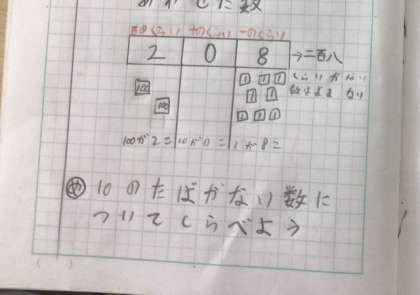 わした数
百のくらい 十のくらい 一のくらい
2 0 8 →二百八
100 100
1 1 1
1 1
1 1 1
100が2こ 10が0こ 1が8こ
め 10のたばがない数に
ついてしらべよう